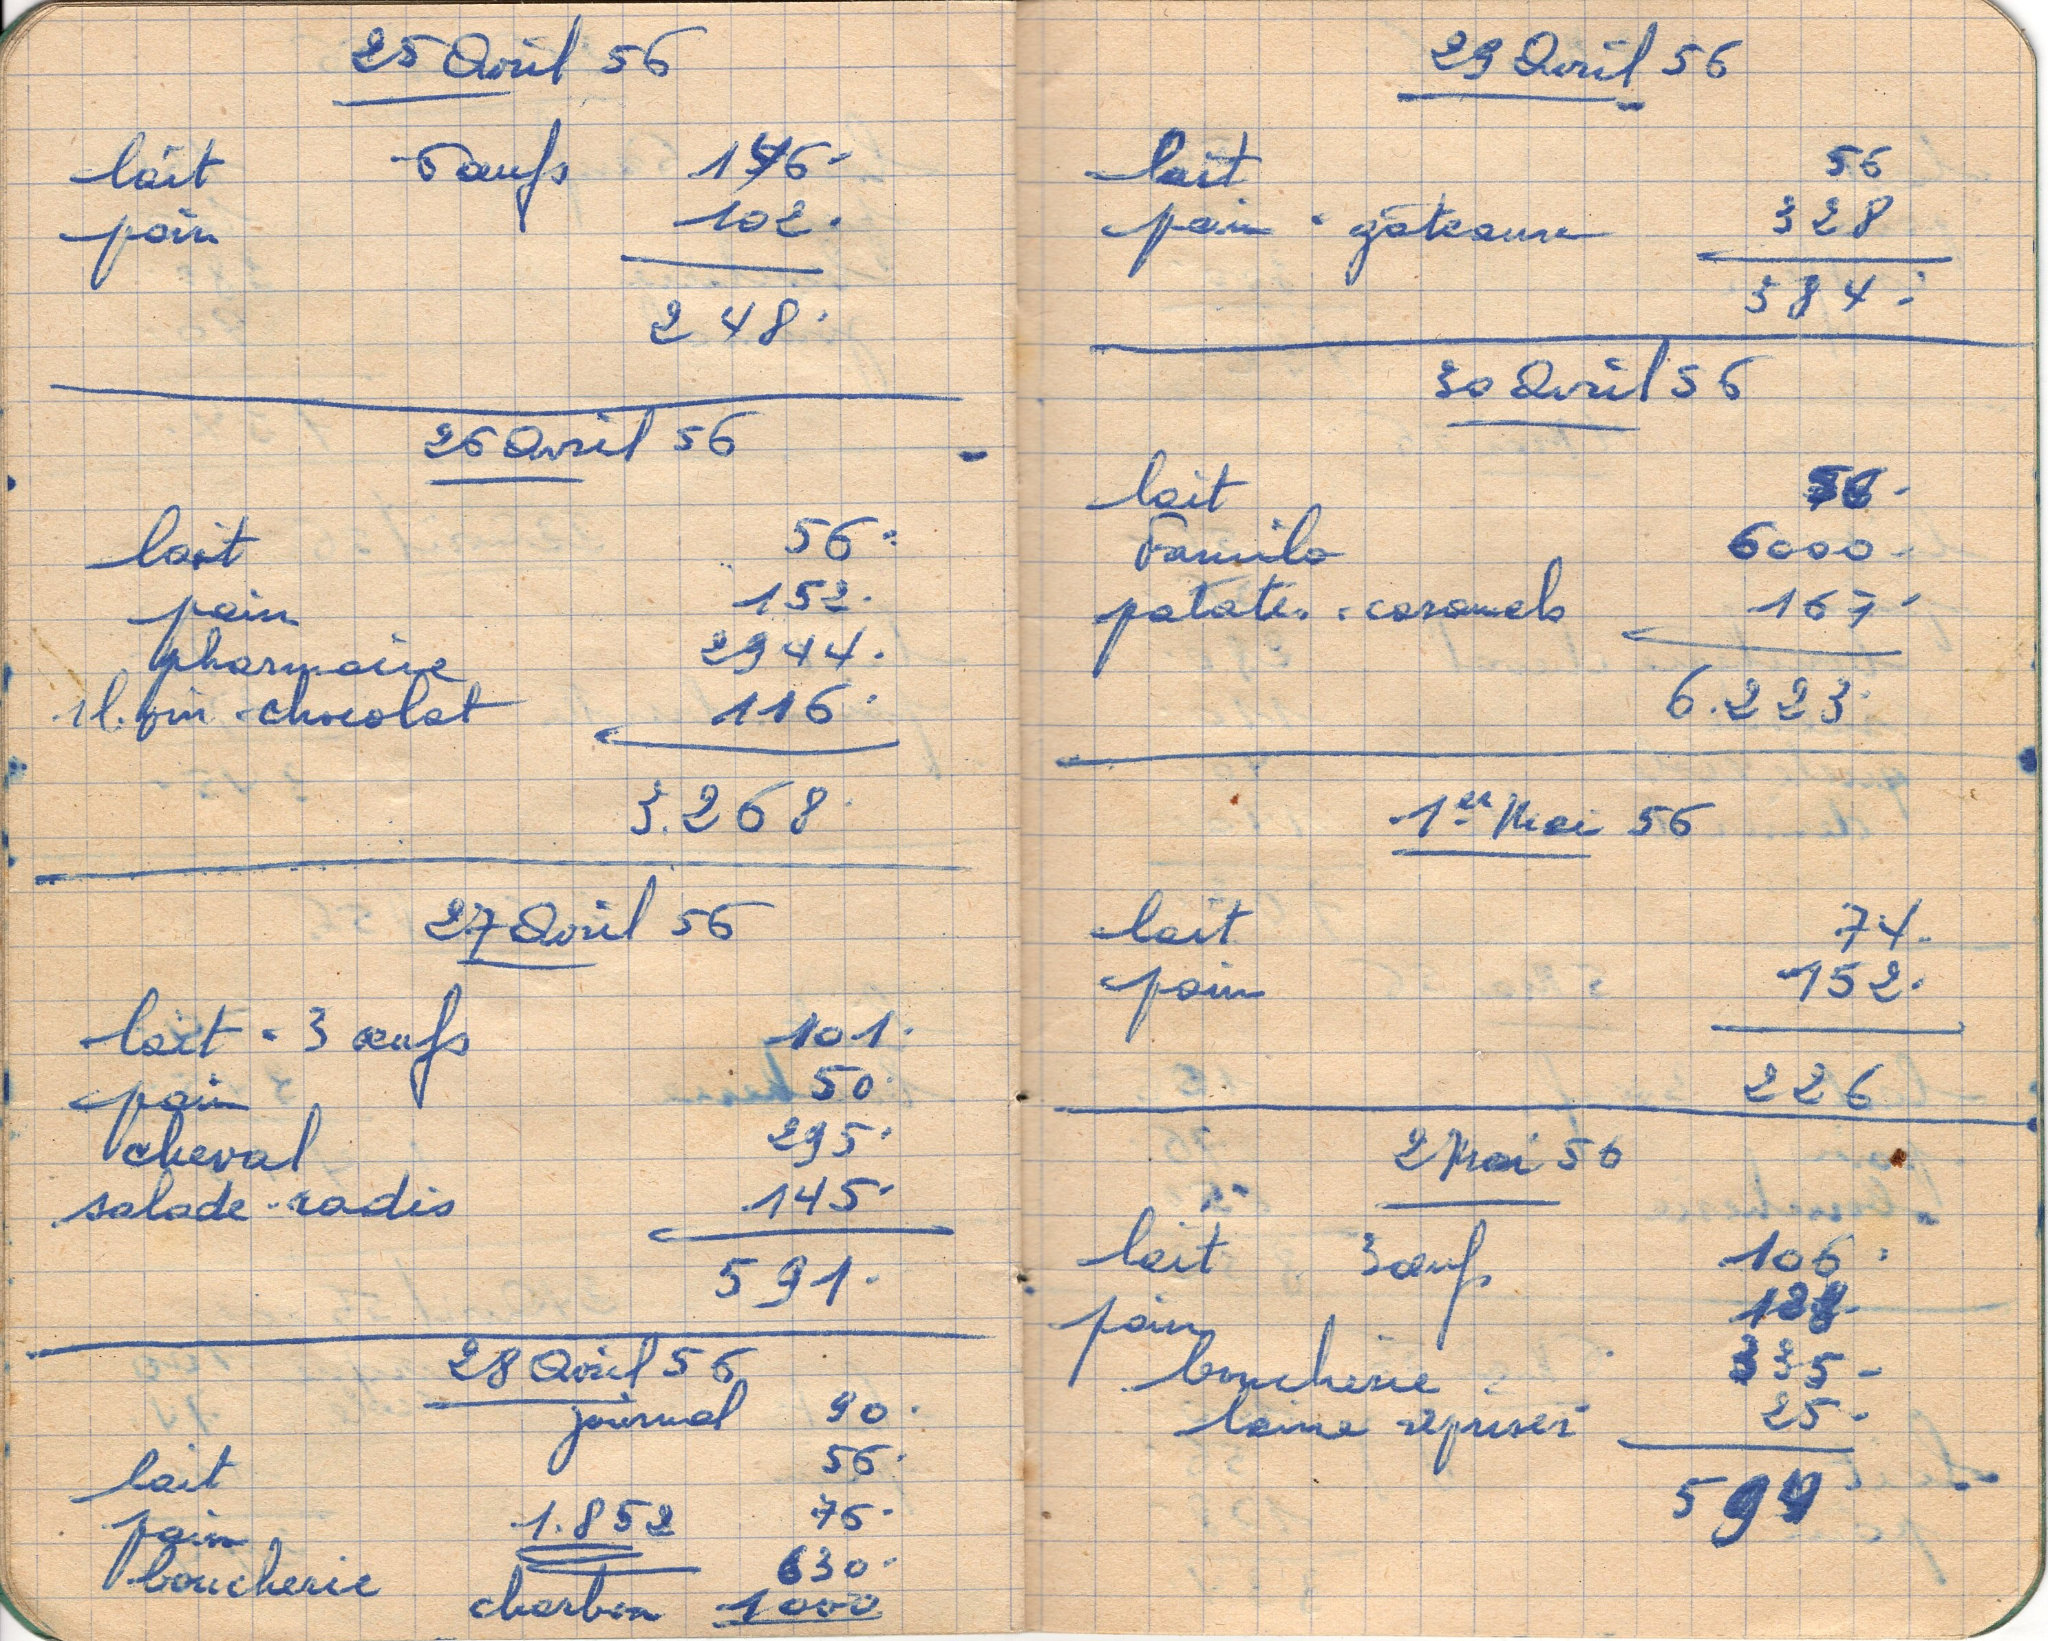 25 Avril 56
lait 6 œufs 146.
pain 102.
248.
26 Avril 56
lait 56.
pain 152.
pharmacie 2944.
1 l. vin - chocolat 116.
3.268.
27 Avril 56
lait - 3 œufs 101.
pain 50.
cheval 295.
salade - radis 145.
591.
28 Avril 56
journal 90.
lait 56.
pain 1.852 76.
boucherie 630.
charbon 1000
29 Avril 56
lait 56
pain - gâteaux 328
384.
30 Avril 56
lait 56.
Familo 6000.
patates - caramels 167.
6.223.
1er Mai 56
lait 74.
pain 152.
226
2 Mai 56
lait 3 œufs 106.
pain 128.
boucherie 335-
laine repriser 25-
594